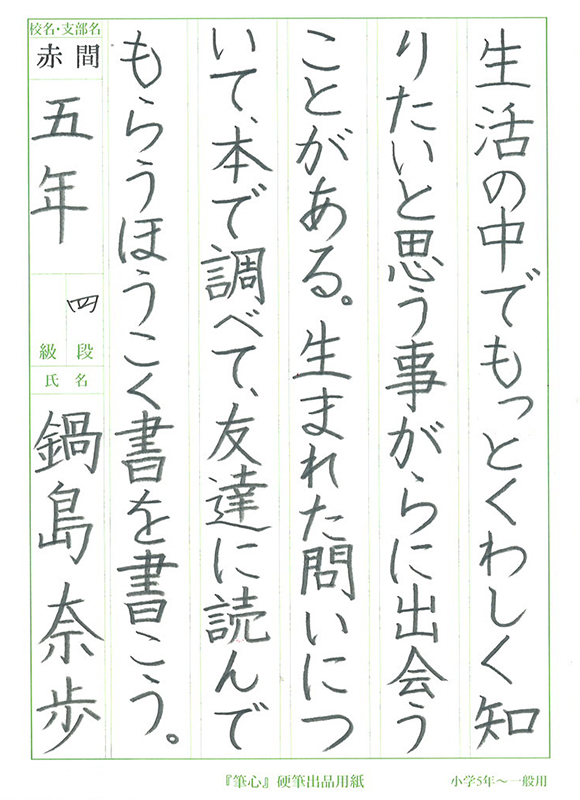 生活の中でもっとくわしく知
りたいと思う事がらに出会う
ことがある。生まれた問いにつ
いて、本で調べて、友達に読んで
もらうほうこく書を書こう。
校名・支部名
赤間
五年
四
級段
氏名
鍋島奈歩
『筆心』硬筆出品用紙
小学5年～一般用